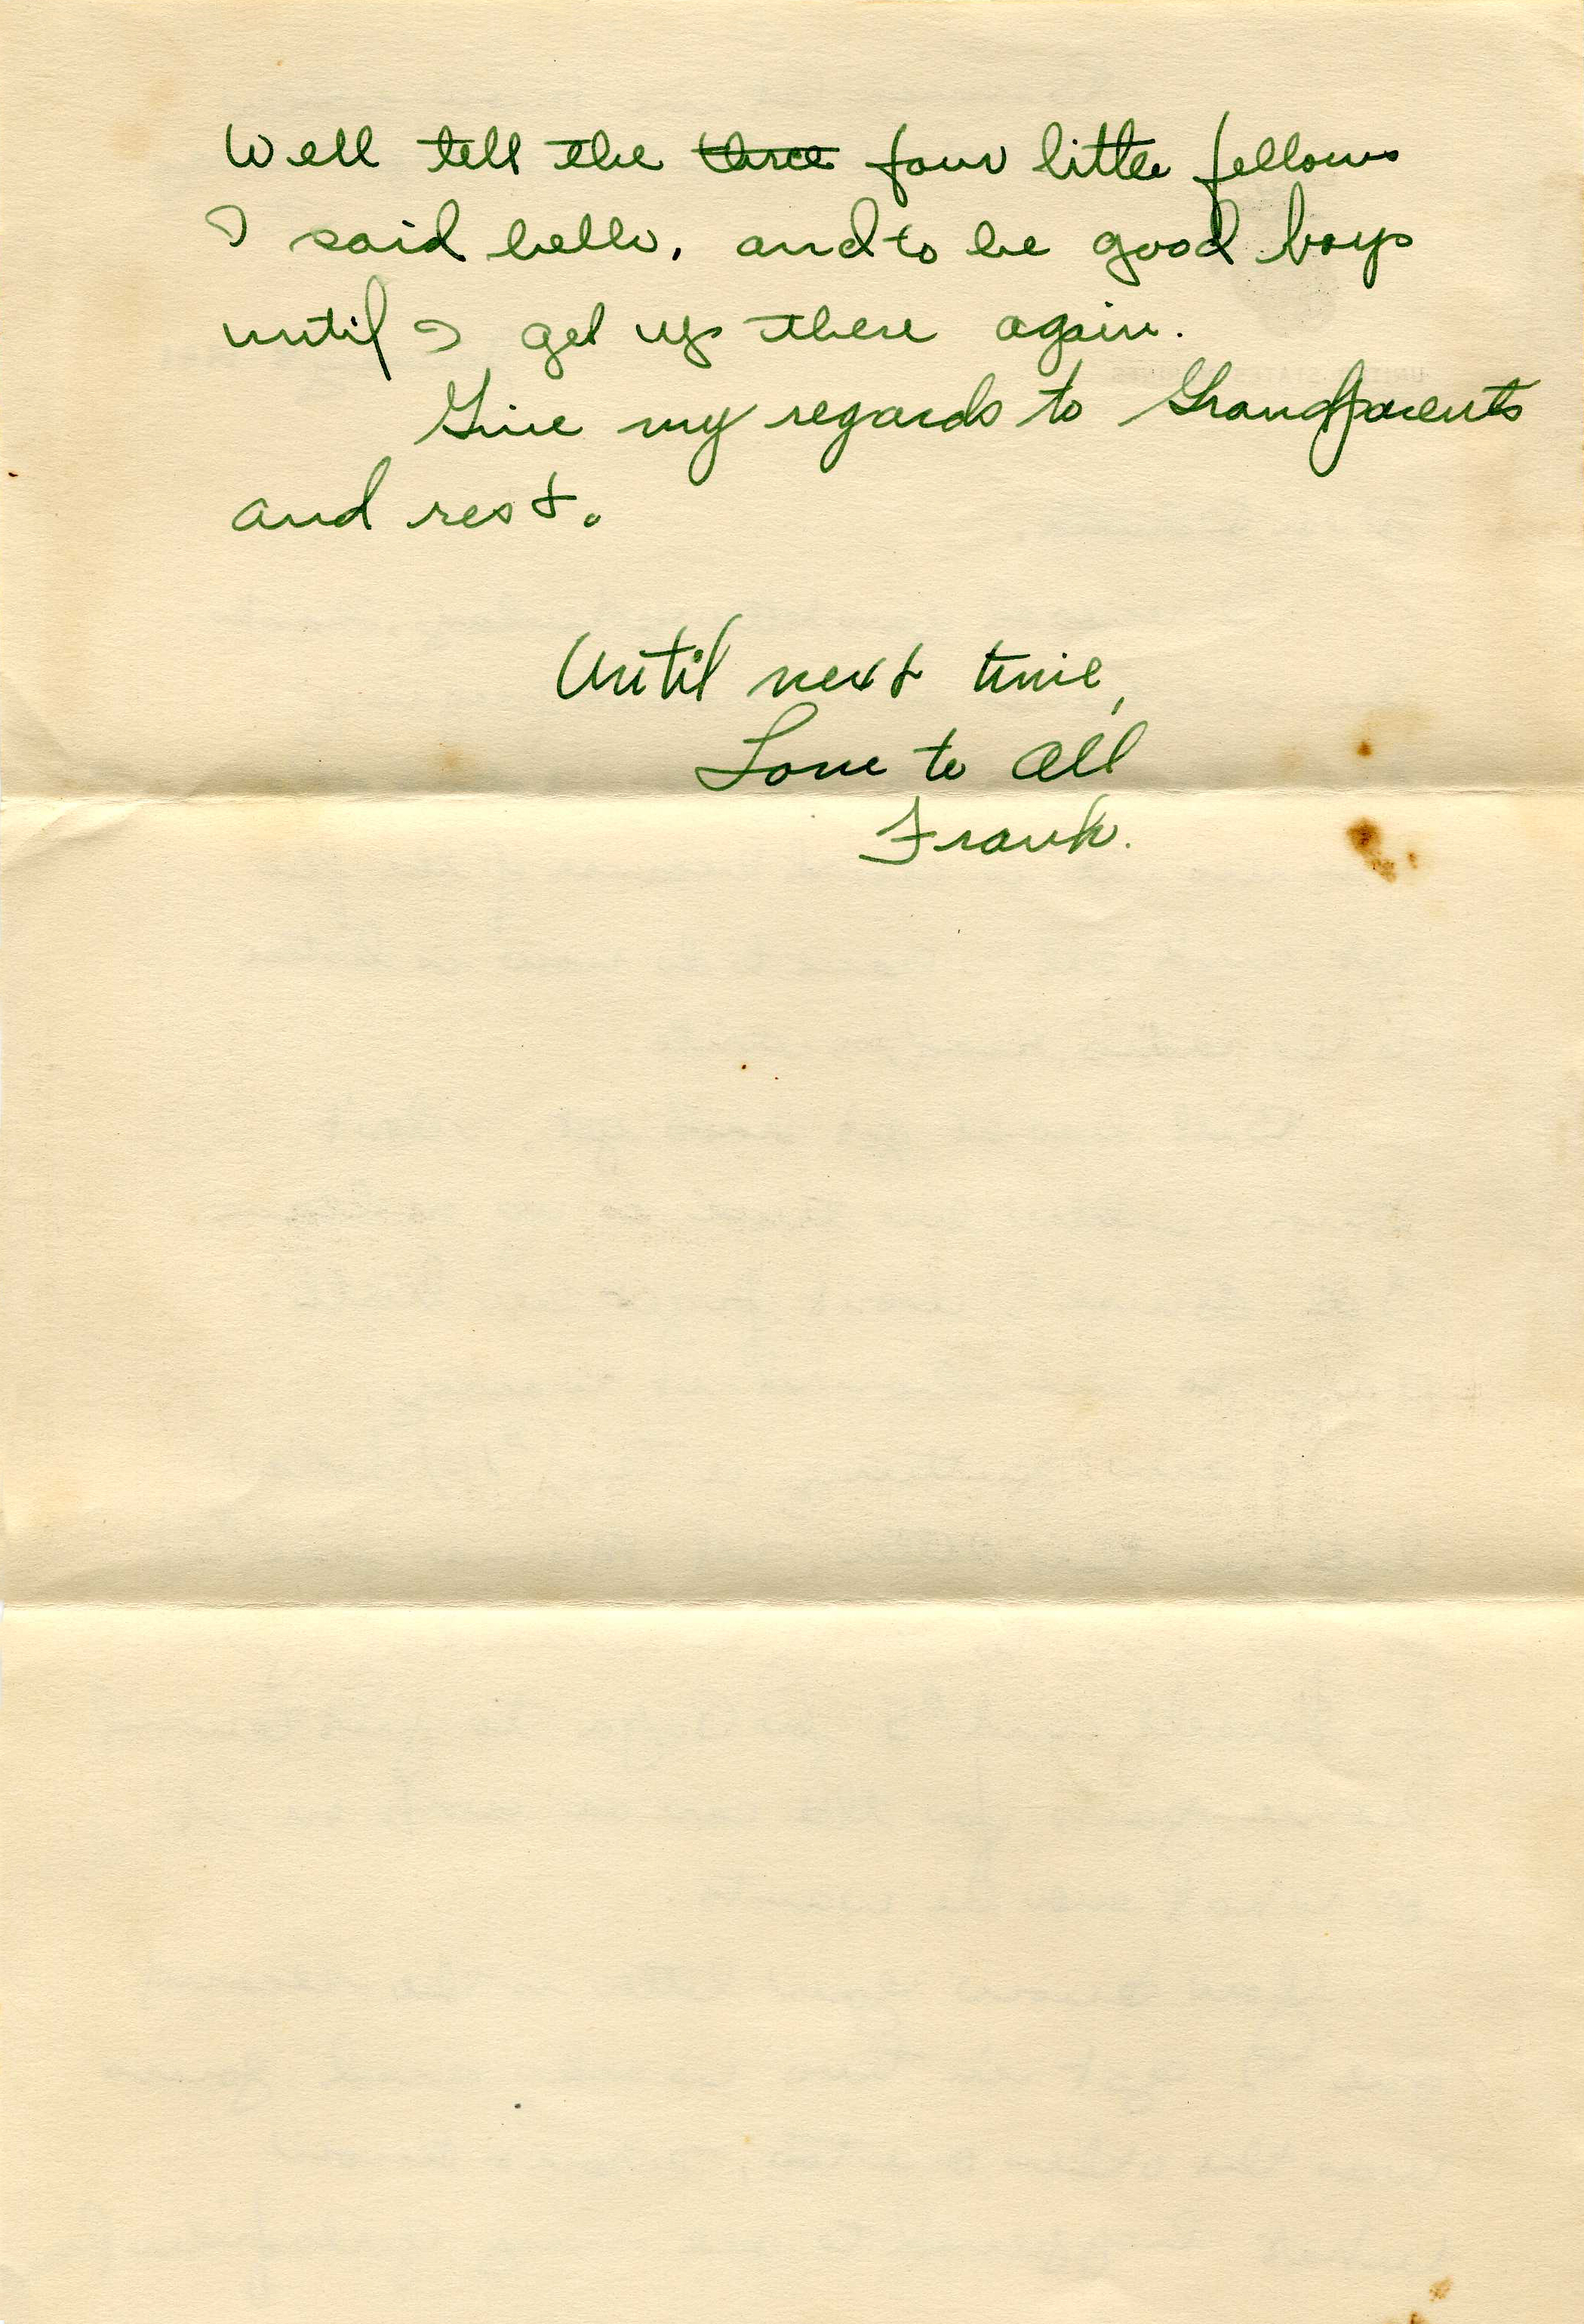 Well tell the three four little fellows
I said hello, and to be good boys
until I get up there again.
Give my regards to Grandparents
and rest.
Until next time,
Love to All
Frank.